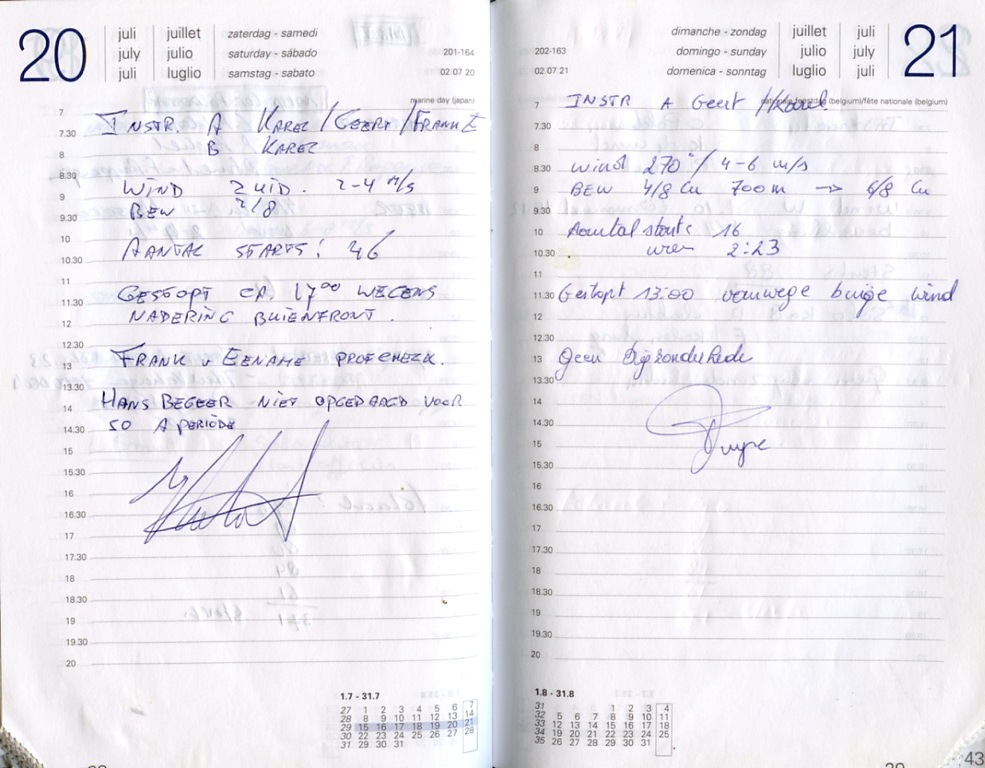 20
juli juillet zaterdag - samedi
july julio saturday - sábado 201-164
juli luglio samstag - sabato 02 07 20
marine day (japan)
7
7.30 INSTR. A KAREL / GEERT / FRANK E
8 B KAREL
8.30
9 WIND ZUID. 2-4 M/S
9.30 BEW 2/8
10 AANTAL STARTS: 46
10.30
11 GESTOPT CA. 17⁰⁰ WEGENS
11.30
12 NADERING BUIENFRONT.
12.30
13 FRANK V EENAME PROFCHECK.
13.30
14 HANS BEGEER NIET OPGEDAAGD VOOR
14.30 SO A PERIODE
15
15.30
16
16.30
17
17.30
18
18.30
19
19.30
20
1.7 - 31.7
27 1 2 3 4 5 6 7
28 8 9 10 11 12 13 14
29 15 16 17 18 19 20 21
30 22 23 24 25 26 27 28
31 29 30 31
dimanche - zondag juillet juli
202-163 domingo - sunday julio july
02 07 21 domenica - sonntag luglio juli
21
nationale feestdag (belgium)/fête nationale (belgium)
7 INSTR A Geert / Karel
7.30
8
8.30 Wind 270° / 4-6 m/s
9 BEW 4/8 Cu 700 m → 6/8 Cu
9.30
10 Aantal starts 16
10.30 uren 2:23
11
11.30 Gestopt 13:00 vanwege buiige wind
12
12.30
13 Geen Bijzonderhede
13.30
14
14.30
15
15.30
16
16.30
17
17.30
18
18.30
19
19.30
20
1.8 - 31.8
31 1 2 3 4
32 5 6 7 8 9 10 11
33 12 13 14 15 16 17 18
34 19 20 21 22 23 24 25
35 26 27 28 29 30 31
43